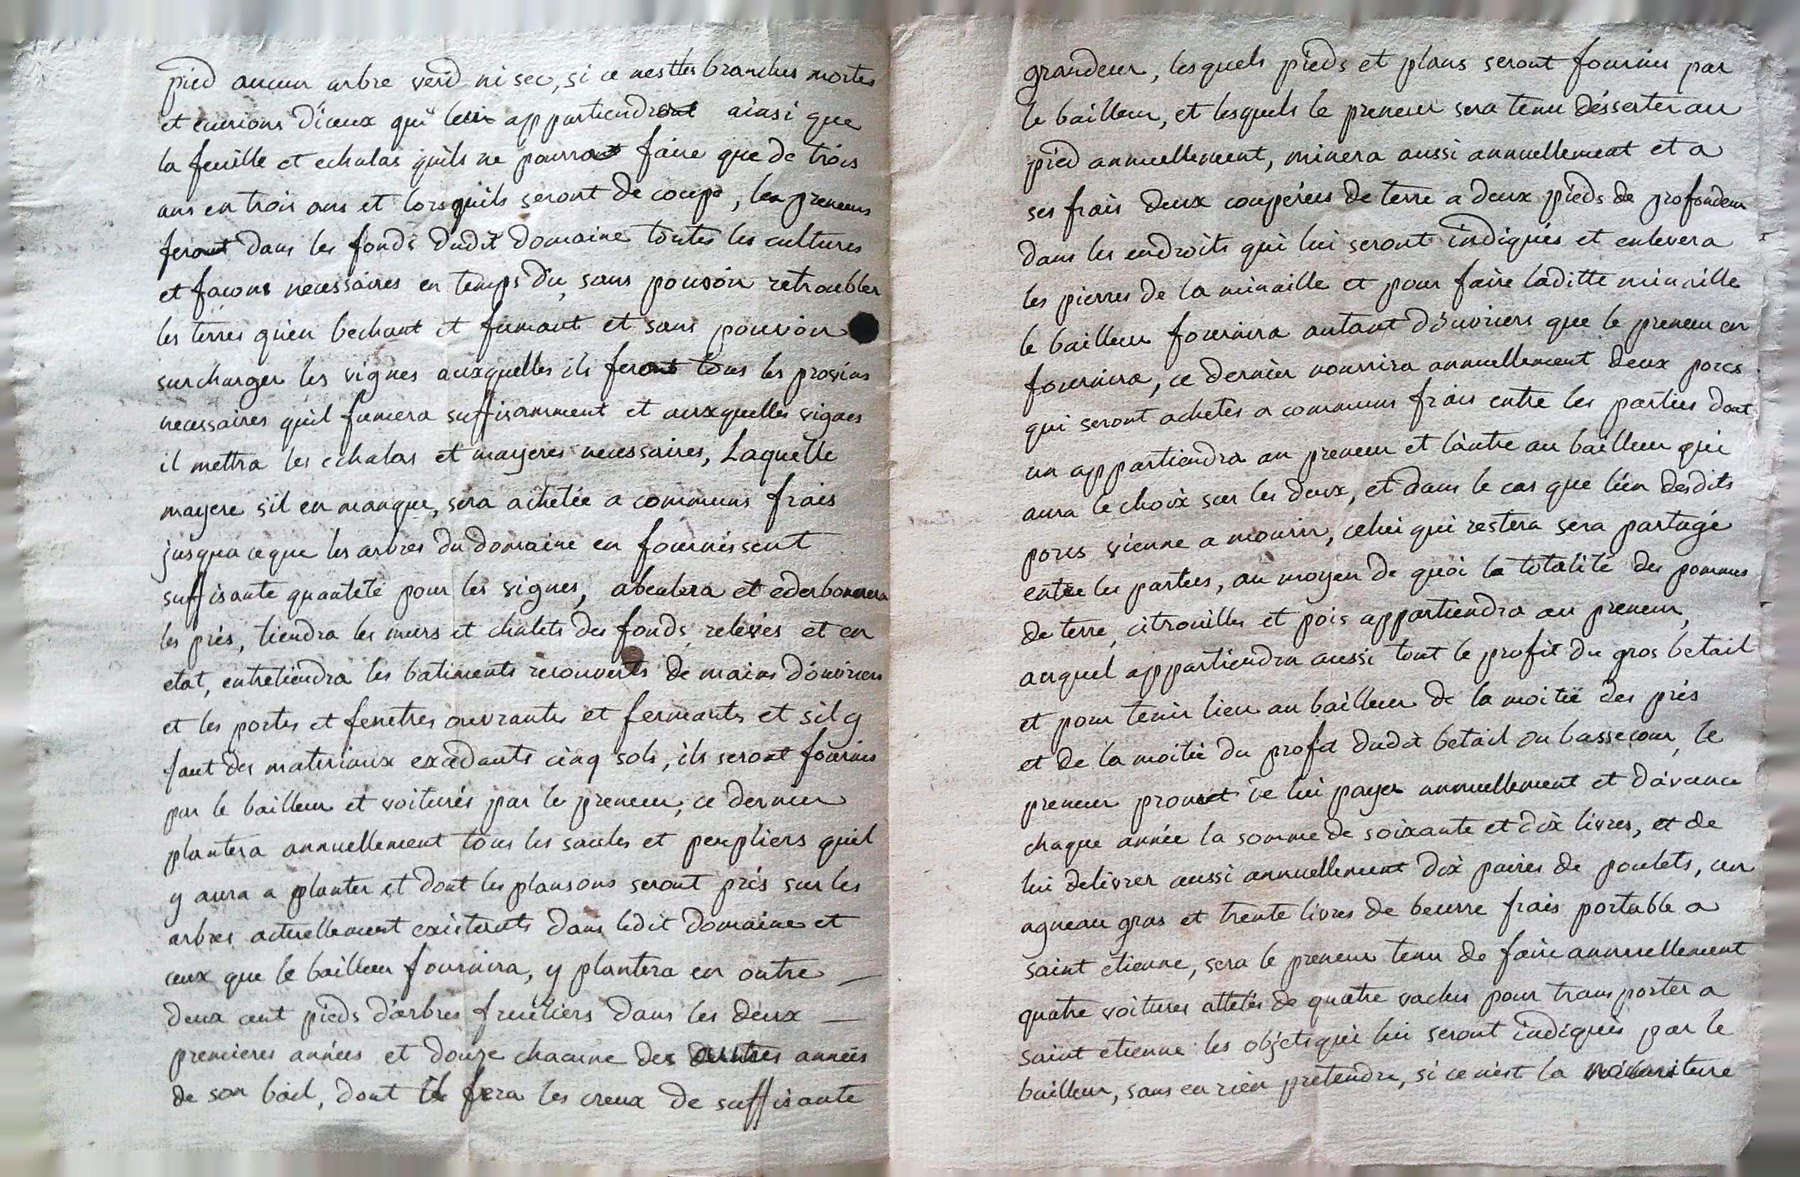 pied aucun arbre verd ni sec, si ce nest les branches mortes
et eurions d'iceux qui leur appartiendront ainsi que
la feuille et echalas quils ne pourront faire que de trois
ans en trois ans et lorsquils seront de coupe, les preneurs
feront dans les fonds dudit domaine toutes les cultures
et façons necessaires en temps du, sans pouvoir retroubler
les terres qu'en bechant et fumant et sans pouvoir
surcharger les vignes auxquelles ils feront tous les provins
necessaires quil fumera suffisamment et auxquelles vignes
il mettra les echalas et mayeres necessaires, Laquelle
mayere s'il en manque, sera achetée a communs frais
jusqua ceque les arbres du domaine en fournissent
suffisante quantité pour les vignes, abealera et ederbonnera
les prés, tiendra les murs et chalets des fonds relevés et en
etat, entretiendra les batiments recouverts de mains d'ouvriers
et les portes et fenetres ouvrantes et fermantes et sil y
faut des materiaux exédants cinq sols, ils seront fournis
par le bailleur et voiturés par le preneur, ce dernier
plantera annuellement tous les saules et peupliers quil
y aura a planter et dont les plansons seront pris sur les
arbres actuellement existants dans ledit domaine et
ceux que le bailleur fournira, y plantera en outre
deux cent pieds d'arbres fruitiers dans les deux
premieres années et douze chacune des autres années
de son bail, dont il fera les creux de suffisante
grandeur, lesquels pieds et plans seront fournis par
le bailleur, et lesquels le preneur sera tenu désserter au
pied annuellement, minera aussi annuellement et a
ses frais deux coupérées de terre a deux pieds de profondeur
dans les endroits qui lui seront indiqués et enlevera
les pierres de la minaille et pour faire laditte minaille
le bailleur fournira autant d'ouvriers que le preneur en
fournira, ce dernier nourrira annuellement deux porcs
qui seront achetés a communs frais entre les parties dont
un appartiendra au preneur et l'autre au bailleur qui
aura le choix sur les deux, et dans le cas que l'un desdits
porcs vienne a mourir, celui qui restera sera partagé
entre les parties, au moyen de quoi la totalité des pommes
de terre, citrouilles et pois appartiendra au preneur,
auquel appartiendra aussi tout le profit du gros betail
et pour tenir lieu au bailleur de la moitié des prés
et de la moitié du profit dudit betail ou bassecour, le
preneur promet de lui payer annuellement et d'avance
chaque année la somme de soixante et dix livres, et de
lui delivrer aussi annuellement dix paires de poulets, un
agneau gras et trente livres de beurre frais portable a
saint etienne, sera le preneur tenu de faire annuellement
quatre voitures attelés de quatre vaches pour transporter a
saint etienne les objets qui lui seront indiqués par le
bailleur, sans en rien pretendre, si ce n'est la nourriture